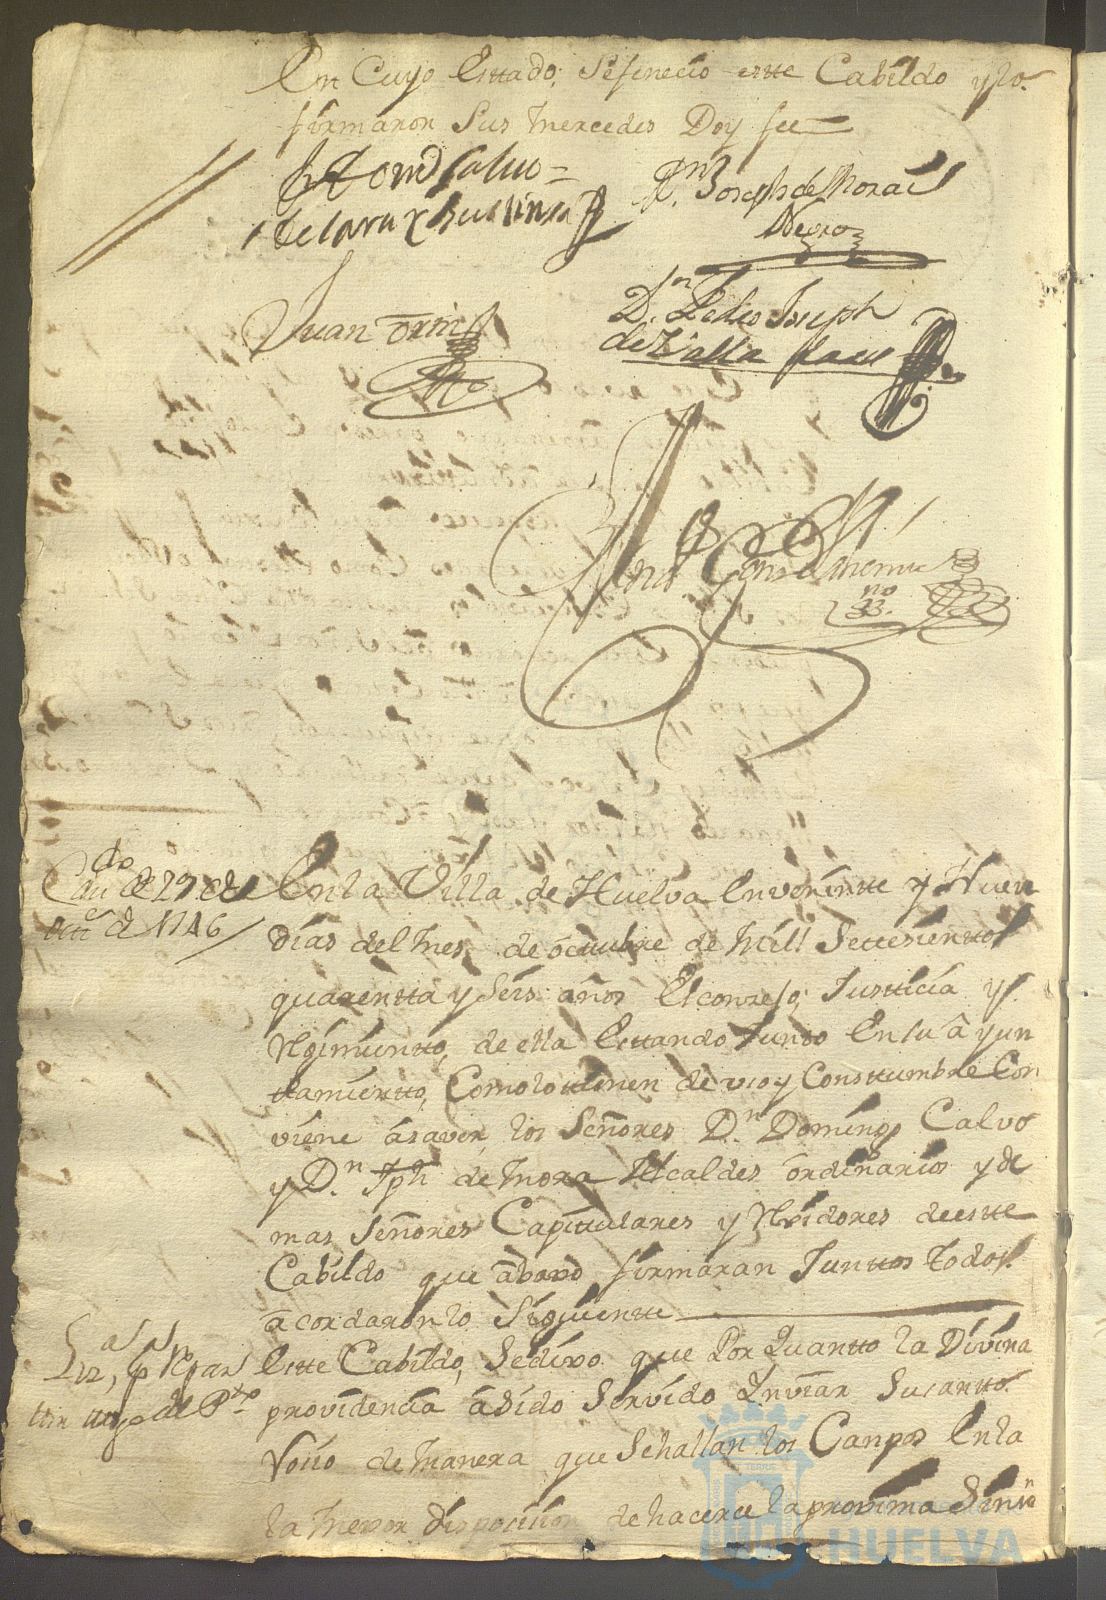 En Cuyo Esttado, Sefinecio estte Cabildo y lo
firmaron Sus mercedes Doy fee
Dn. Joseph de Mora
Negro
Juan Orttiz
Dn. Pedro Joseph
de
no
Cavdo de 29 de
octe d 1746
En la Villa de Huelva En veinte y Nueve
dias del mes de octubre de mill Settesienttos
quarentta y Seis años El consejo, Justticia y
Rejimientto, de ella Esttando Junto En su ayun
ttamientto, Como lo ttienen de uso y Consttumbre Con
viene ásaver, los Señores Dn. Domingo Calvo
y Dn. Jph de Mora Alcaldes ordinarios y de
mas Señores Capittulares y Rexidores de estte
Cabildo que abaxo firmaran Junttos todos
acordaron lo Siguientte
Estte Cabildo, Sedixo que Por Quantto la Divina
providencia ásido Servido Inviar Su santto
Rosio de manera que Sehallan los Campos En la
la mexor disposision de hacerce la proxima Simn
HUELVA